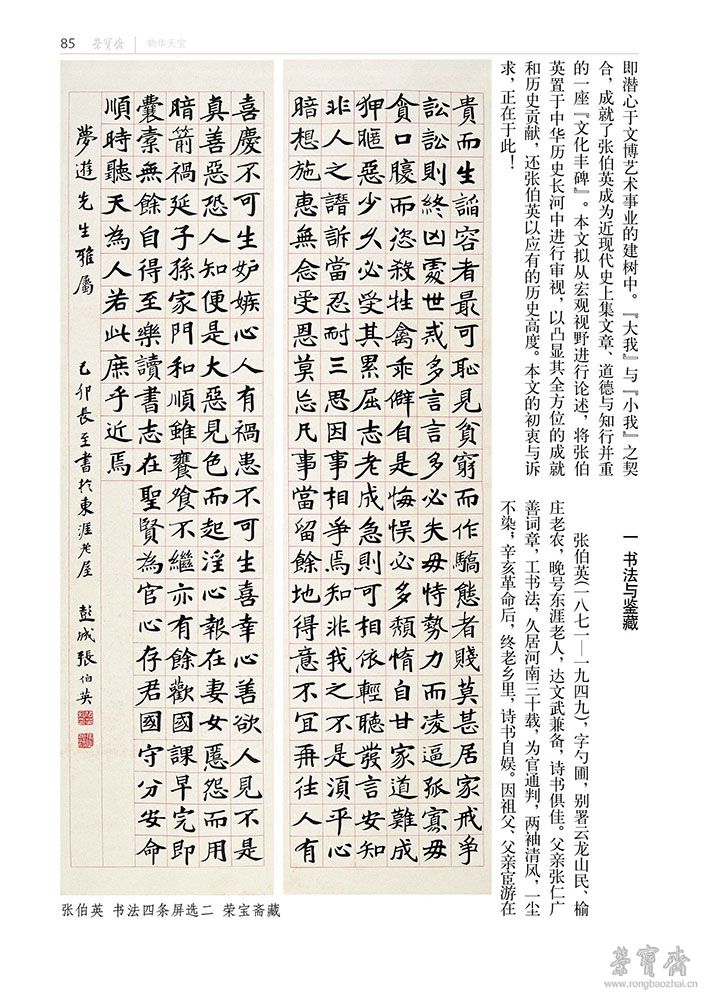 85 榮寶齋 物华天宝
即潜心于文博艺术事业的建树中。『大我』与『小我』之契
合，成就了张伯英成为近现代史上集文章、道德与知行并重
的一座『文化丰碑』。本文拟从宏观视野进行论述，将张伯
英置于中华历史长河中进行审视，以凸显其全方位的成就
和历史贡献，还张伯英以应有的历史高度。本文的初衷与诉
求，正在于此！
一 书法与鉴藏
张伯英(一八七一—一九四九)，字勺圃，别署云龙山民、榆
庄老农，晚号东涯老人，达文武兼备，诗书俱佳。父亲张仁广
善词章，工书法，久居河南三十载，为官通判，两袖清风，一尘
不染；辛亥革命后，终老乡里，诗书自娱。因祖父、父亲宦游在
貴而生謟容者最可恥見貧窮而作驕態者賤莫甚居家戒争
訟訟則終凶處世戒多言言多必失毋恃勢力而凌逼孤寡毋
貪口腹而恣殺牲禽乖僻自是悔悮必多頹惰自甘家道難成
狎暱惡少久必受其累屈志老成急則可相依輕聽發言安知
非人之譖訴當忍耐三思因事相爭焉知非我之不是湏平心
暗想施惠無念受恩莫忘凡事當留餘地得意不宜再往人有
喜慶不可生妒嫉心人有禍患不可生喜幸心善欲人見不是
真善惡恐人知便是大惡見色而起淫心報在妻女匿怨而用
暗箭禍延子孫家門和順雖饔飧不繼亦有餘歡國課早完即
囊橐無餘自得至樂讀書志在聖賢為官心存君國守分安命
順時聽天為人若此庶乎近焉
夢遊先生雅屬 己卯長至書於東涯老屋 彭城張伯英
张伯英 书法四条屏选二 荣宝斋藏
榮寶齋
www.rongbaozhai.cn